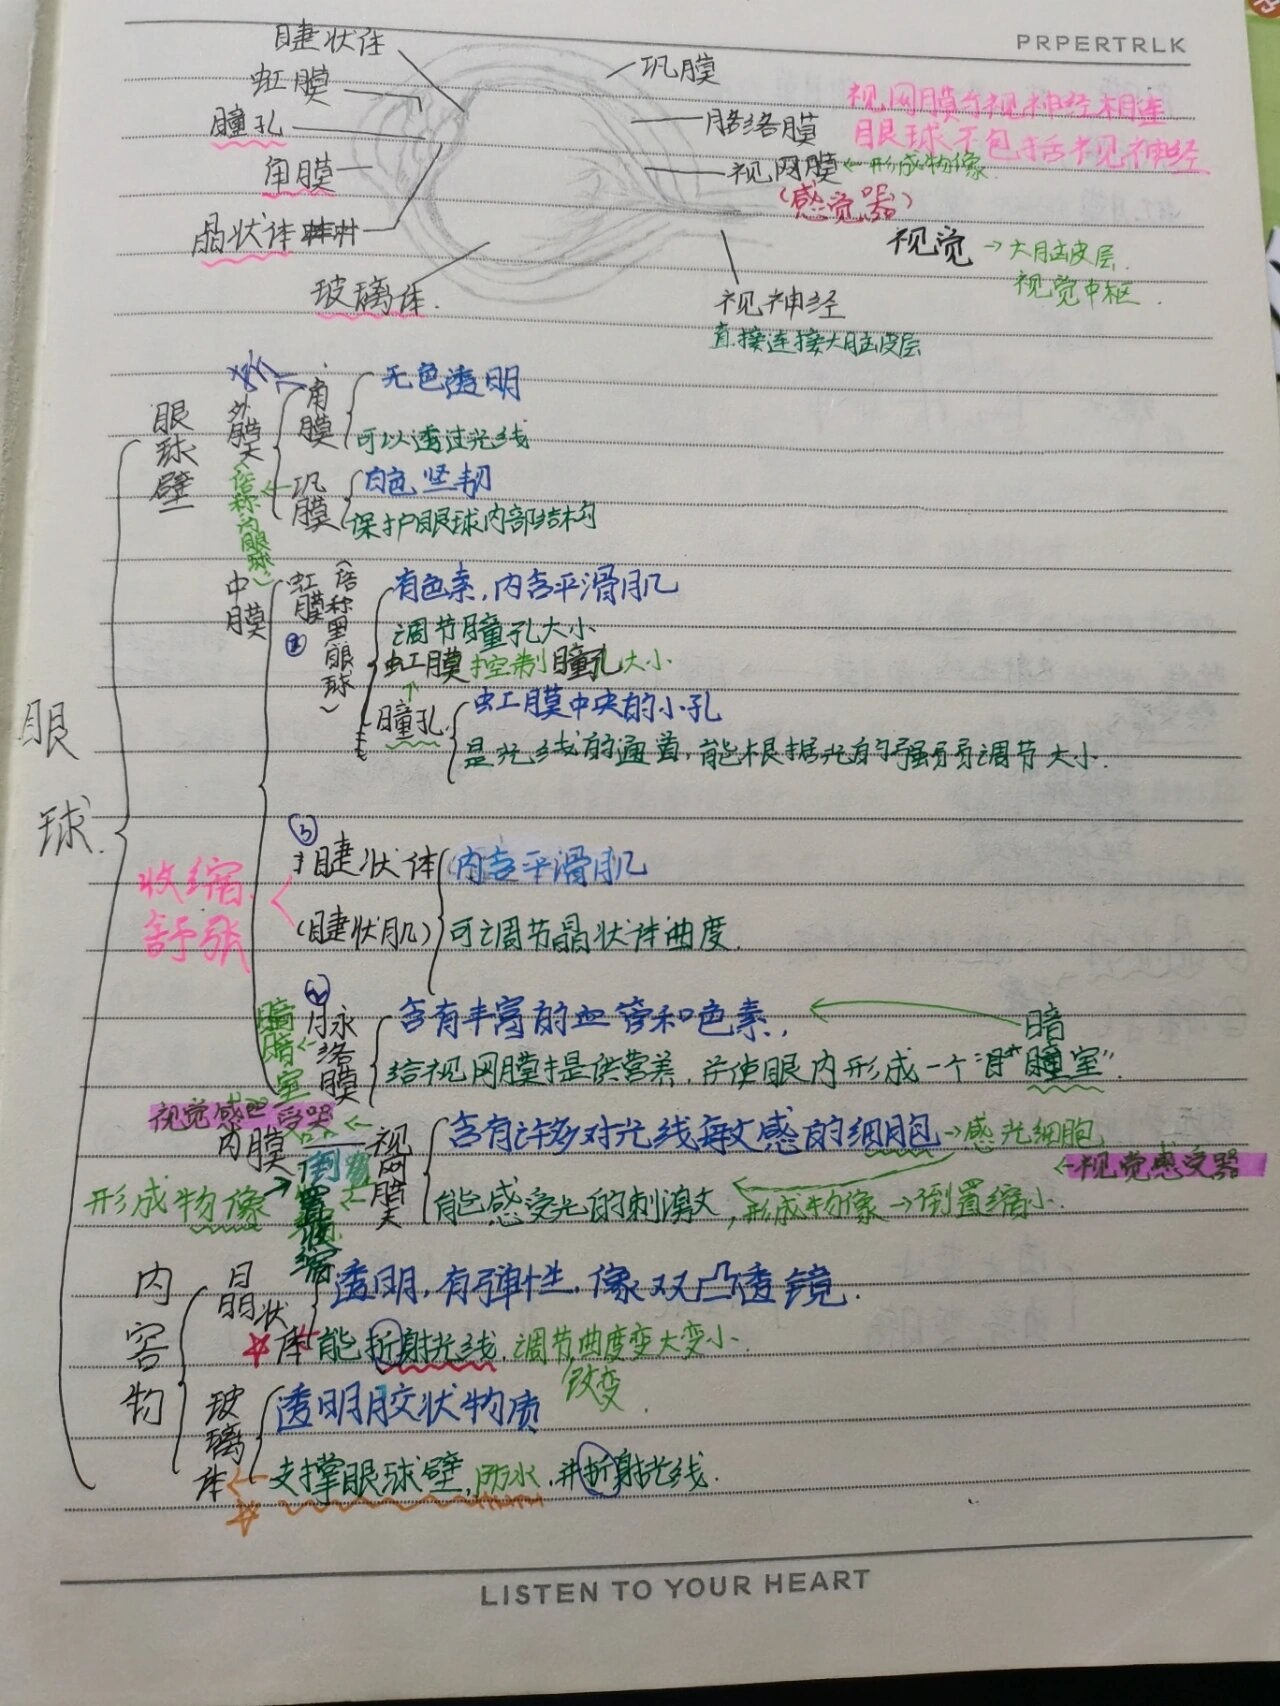 PRPERTRLK
睫状体
虹膜
瞳孔
角膜
晶状体
玻璃体.
巩膜
脉络膜
视网膜←形成物像.
(感觉器)
视神经
直接连接大脑皮层
视网膜与视神经相连
眼球不包括视神经
视觉→大脑皮层.
视觉中枢.
眼球.
眼球壁
外膜
角膜
无色透明
可以透过光线
巩膜
(俗称白眼球)
白色坚韧
保护眼球内部结构
中膜
虹膜
②
(俗称黑眼球)
有色素,内含平滑肌
调节瞳孔大小
虹膜控制瞳孔大小.
瞳孔
虹膜中央的小孔
是光线的通道,能根据光的强弱调节大小.
③
睫状体
(睫状肌)
收缩
舒张
内含平滑肌
可调节晶状体曲度.
脉络膜
暗室
含有丰富的血管和色素.
暗
给视网膜提供营养,并使眼内形成一个"暗室"
视觉感受器
内膜
视网膜
含有许多对光线敏感的细胞→感光细胞
←视觉感受器
能感受光的刺激,形成物像→倒置缩小.
形成物像
倒置
内容物
晶状体
透明,有弹性.像双凸透镜.
能折射光线.调节曲度变大变小.
改变
玻璃体
透明胶状物质
支撑眼球壁,防水.并折射光线.
LISTEN TO YOUR HEART